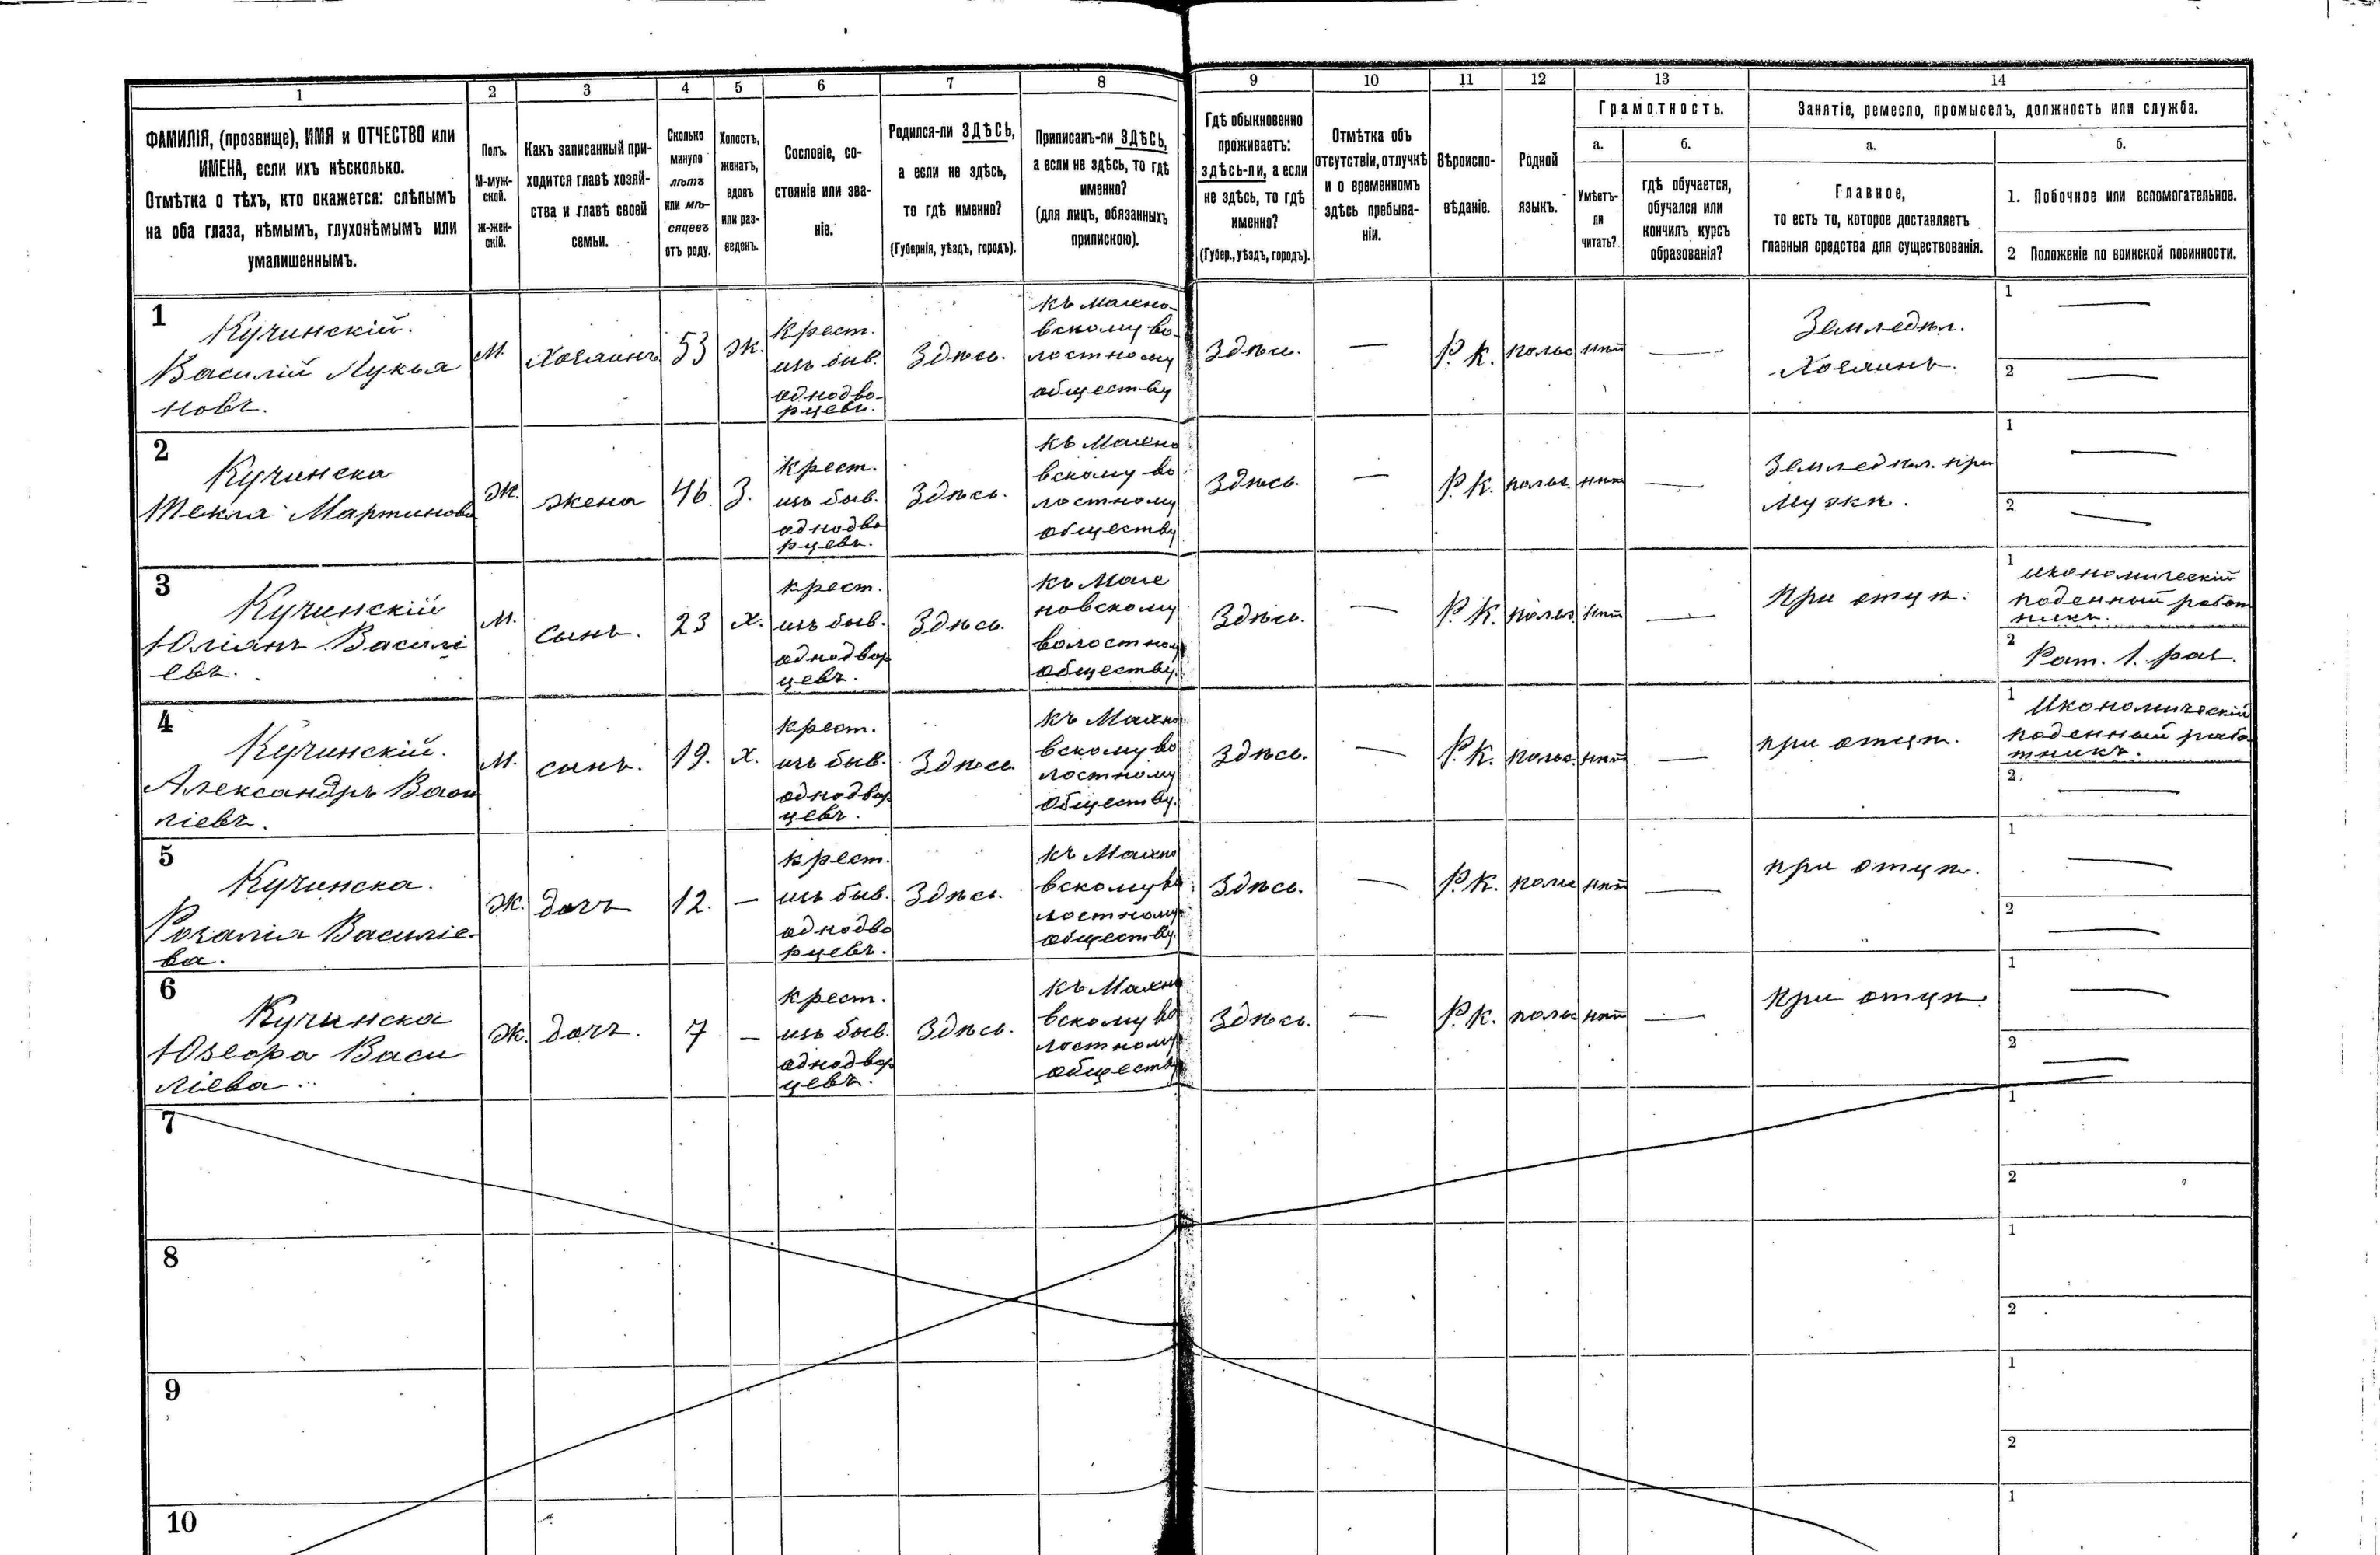 1
2
3
4
5
6
7
8
9
10
11
12
13
14
ФАМИЛІЯ, (прозвище), ИМЯ и ОТЧЕСТВО или
ИМЕНА, если ихъ нѣсколько.
Отмѣтка о тѣхъ, кто окажется: слѣпымъ
на оба глаза, нѣмымъ, глухонѣмымъ или
умалишеннымъ.
Полъ.
М-муж-
ской.
ж-жен-
скій.
Какъ записанный при-
ходится главѣ хозяй-
ства и главѣ своей
семьи.
Сколько
минуло
лѣтъ
или мѣ-
сяцевъ
отъ роду.
Холостъ,
женатъ,
вдовъ
или раз-
веденъ.
Сословіе, со-
стояніе или зва-
ніе.
Родился-ли ЗДѢСЬ,
а если не здѣсь,
то гдѣ именно?
(Губернія, уѣздъ, городъ).
Приписанъ-ли ЗДѢСЬ,
а если не здѣсь, то гдѣ
именно?
(для лицъ, обязанныхъ
припискою).
Гдѣ обыкновенно
проживаетъ:
здѣсь-ли, а если
не здѣсь, то гдѣ
именно?
(Губер., уѣздъ, городъ).
Отмѣтка объ
отсутствіи, отлучкѣ
и о временномъ
здѣсь пребыва-
ніи.
Вѣроиспо-
вѣданіе.
Родной
языкъ.
Грамотность.
а.
Умѣетъ-
ли
читать?
б.
гдѣ обучается,
обучался или
кончилъ курсъ
образованія?
Занятіе, ремесло, промыселъ, должность или служба.
а.
Главное,
то есть то, которое доставляетъ
главныя средства для существованія.
б.
1. Побочное или вспомогательное.
2 Положеніе по воинской повинности.
1
Кучинскій.
Василій Лукья
новъ.
М.
Хозяинъ
53
Ж.
Крест.
изъ быв.
однодво-
рцевъ.
Здѣсь.
къ Махно-
вскому во-
лостному
обществу
Здѣсь.
—
Р. К.
польс
нѣт
—
Земледѣл.
Хозяинъ.
1 —
2 —
2
Кучинска
Текла Мартинова
Ж.
жена
46
З.
Крест.
изъ быв.
однодво
рцевъ.
Здѣсь.
къ Махно
вскому во
лостному
обществу
Здѣсь.
—
Р. К.
польс.
нѣт
—
Земледѣл. при
мужѣ.
1 —
2 —
3
Кучинскій
Юліянъ Василі
евъ.
М.
сынъ.
23
Х.
крест.
изъ быв.
однодвор
цевъ.
Здѣсь.
къ Мах
новскому
волостному
обществу.
Здѣсь.
—
Р. К.
польс.
нѣт
—
При отцѣ.
1 Икономическій
поденный работ
никъ.
2 Рат. 1. раз.
4
Кучинскій.
Александръ Васи
ліевъ.
М.
сынъ.
19.
Х.
крест.
изъ быв.
однодвор
цевъ.
Здѣсь
къ Махно
вскому во
лостному
обществу.
Здѣсь.
—
Р. К.
польс.
нѣт
—
при отцѣ.
1 Икономическій
поденный рабо
тникъ.
2. —
5
Кучинска.
Розалія Василіе-
ва.
Ж.
дочъ
12.
—
крест.
изъ быв.
однодво
рцевъ.
Здѣсь.
къ Махно
вскому во
лостному
обществу.
Здѣсь.
—
Р. К.
польс
нѣт
—
при отцѣ.
1 —
2 —
6
Кучинска
Юзефа Васи
ліева.
Ж.
дочъ.
7
—
крест.
изъ быв.
однодвор
цевъ.
Здѣсь.
къ Махно
вскому во
лостному
обществу
Здѣсь.
—
Р. К.
польс
нѣт
—
При отцѣ.
1 —
2 —
7
1
2
8
1
2
9
1
2
10
1